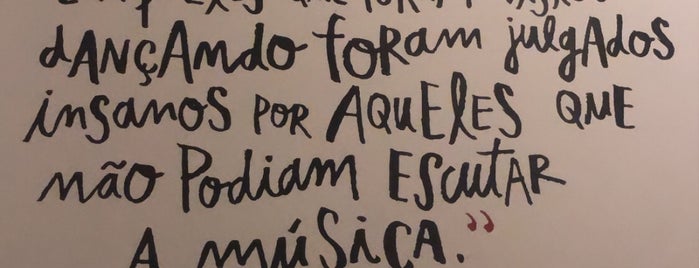 que foram
dANÇANdo foram julgAdos
insanos por AQuElES QuE
não Podiam EscutAR
A músicA.”